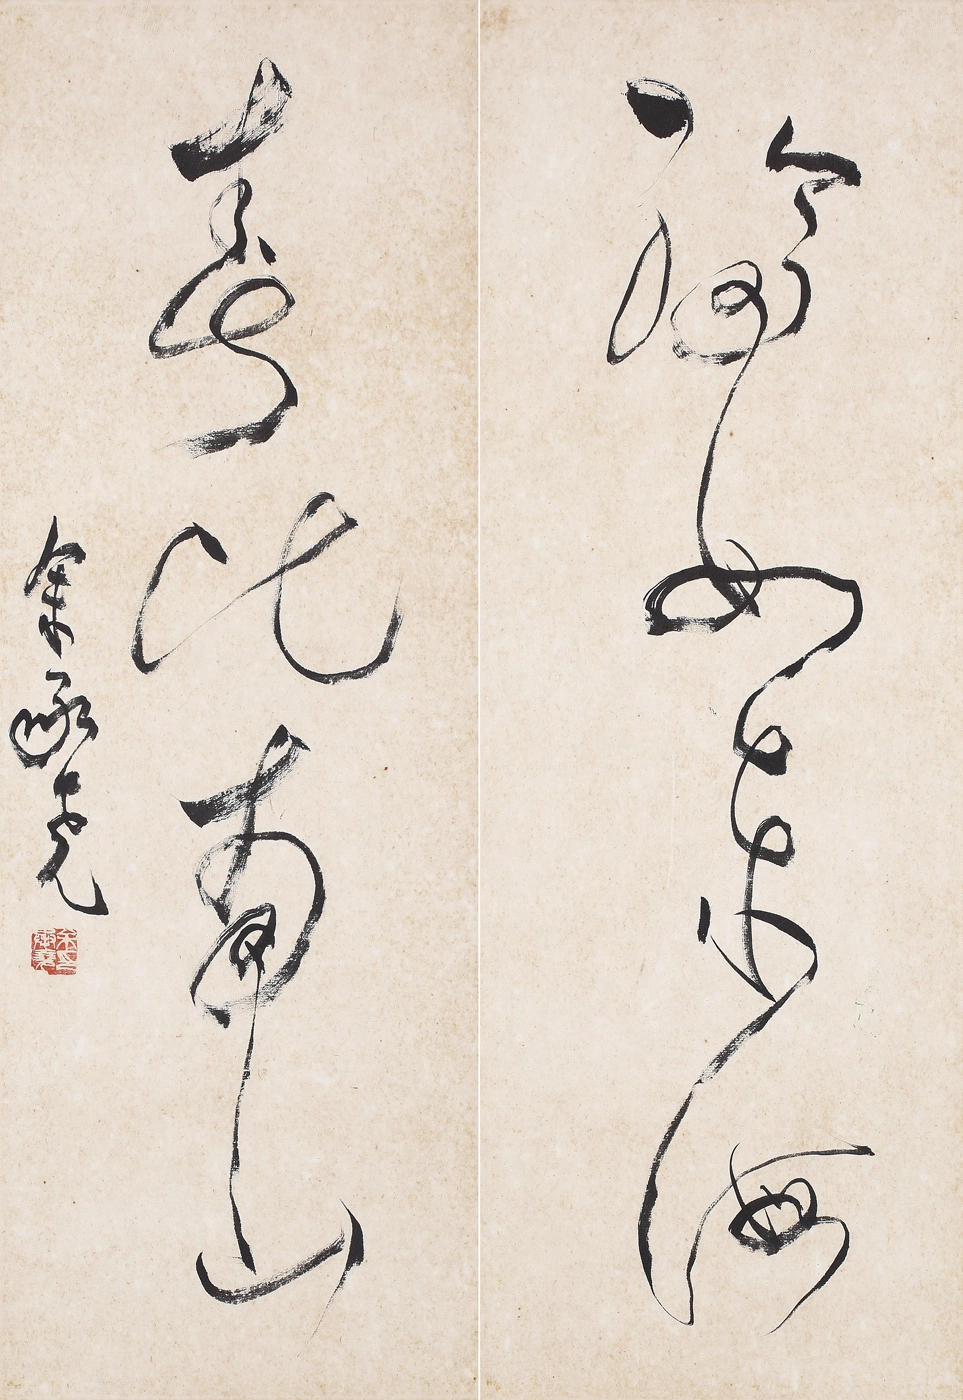 福如东海
寿比南山
余承尧